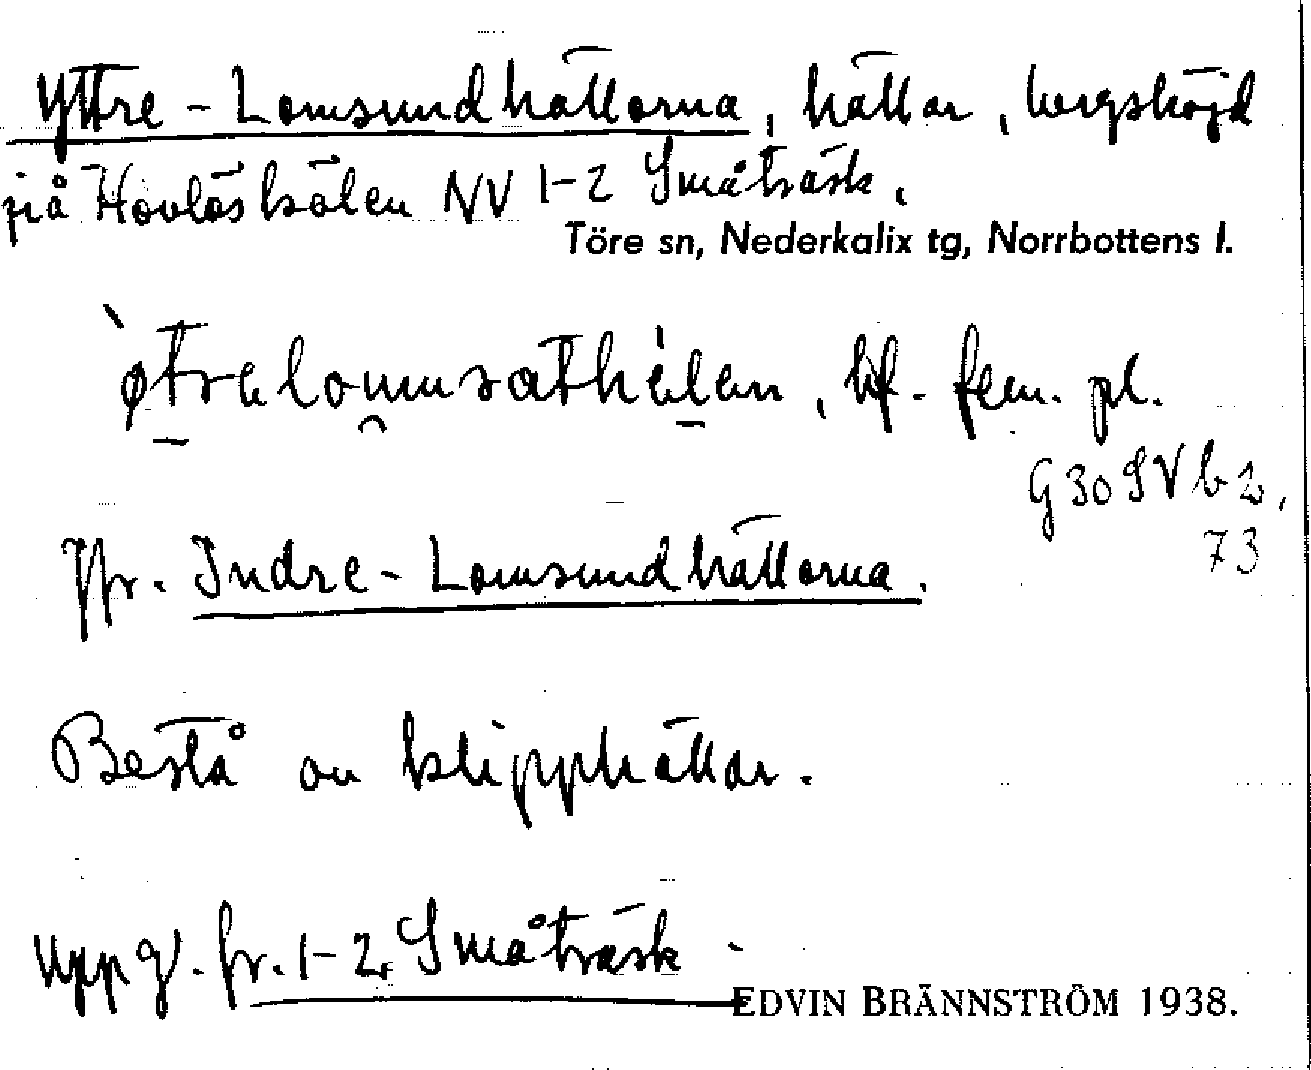 Yttre-Lomsundhällorna, hällar, bergshöjd
på Hovlöskölen NV 1-2 Småträsk.
Töre sn, Nederkalix tg, Norrbottens l.
bf. fem. pl.
G 30 SV b 2,
73
Jfr. Indre-Lomsundhällorna.
Bestå av klipphällar.
Uppg. fr. 1-2 Småträsk.
EDVIN BRÄNNSTRÖM 1938.